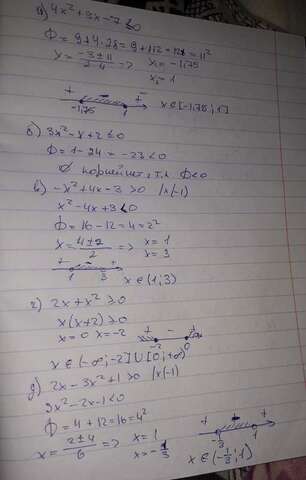 а) 4x² + 3x - 7 ≤ 0
D = 9 + 4·28 = 9 + 112 = 121 = 11²
x = (-3 ± 11)/(2·4) => x₁ = -1,75
x₂ = 1
+ - +
-1,75 1 x ∈ [-1,75; 1]
б) 3x² - x + 2 ≤ 0
D = 1 - 24 = -23 < 0
∅ корней нет, т.к. D < 0
в) -x² + 4x - 3 > 0 |x(-1)
x² - 4x + 3 < 0
D = 16 - 12 = 4 = 2²
x = (4 ± 2)/2 => x = 1
x = 3
+ - +
1 3
x ∈ (1; 3)
г) 2x + x² ≥ 0
x(x+2) ≥ 0
x = 0 x = -2
+ - +
-2 0
x ∈ (-∞; -2] U [0; +∞)
д) 2x - 3x² + 1 > 0 |x(-1)
3x² - 2x - 1 < 0
D = 4 + 12 = 16 = 4²
x = (2 ± 4)/6 => x = 1
x = -1/3
+ - +
-1/3 1
x ∈ (-1/3; 1)